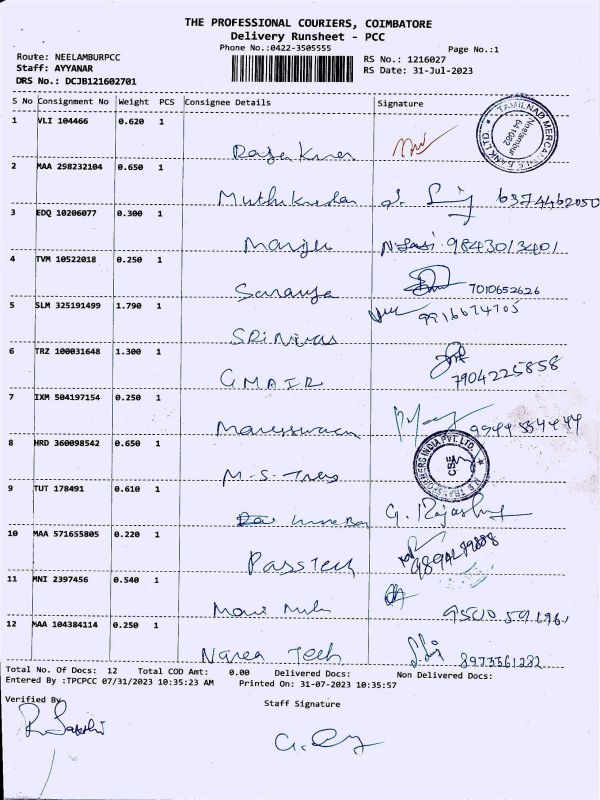 THE PROFESSIONAL COURIERS, COIMBATORE
Delivery Runsheet - PCC
Phone No.:0422-3505555
Page No.:1
Route: NEELAMBURPCC
RS No.: 1216027
Staff: AYYANAR
RS Date: 31-Jul-2023
DRS No.: DCJB121602701
S No Consignment No Weight PCS Consignee Details Signature
1 VLI 104466 0.620 1
TAMILNAD MERCANTILE BANK LTD.
Neelambur
641062
Raja
2 MAA 298232104 0.650 1
6374462050
3 EDQ 10206077 0.300 1
Manju 9843013401
4 TVM 10522018 0.250 1
Saranya 7010652626
5 SLM 325191499 1.790 1
SRiNivas
6 TRZ 100031648 1.300 1
GMAIR 7904225858
7 IXM 504197154 0.250 1
8 HRD 360098542 0.650 1
INDIA PVT. LTD.
CBE
M.S.
9 TUT 178491 0.610 1
G.
10 MAA 571655805 0.220 1
PassTech
11 MNI 2397456 0.540 1
12 MAA 104384114 0.250 1
Tech 8973561282
Total No. Of Docs: 12 Total COD Amt: 0.00 Delivered Docs: Non Delivered Docs:
Entered By :TPCPCC 07/31/2023 10:35:23 AM Printed On: 31-07-2023 10:35:57
Verified By
Staff Signature